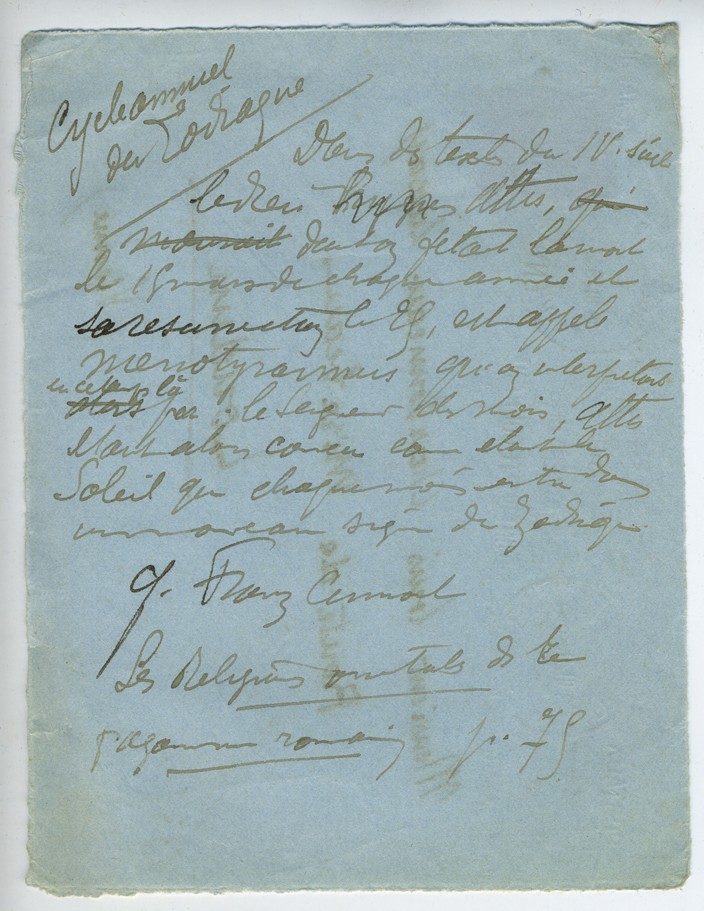 Cycle annuel
du Zodiaque
Dans des textes du IV. siècle
le dieu Attis, qui
mourait dont on fêtait la mort
le 15 mars de chaque année et
sa resurrection le 25, est appelé
menotyrannus qu'on interpretait
en ce temps là
alors par : le Seigneur des mois, Attis
étant alors concu comme étant le
Soleil qui chaque mois entre dans
un nouveau signe du Zodiaque.
cf. Franz Cumont
Les Religions orientales ds le
paganisme romain p. 75